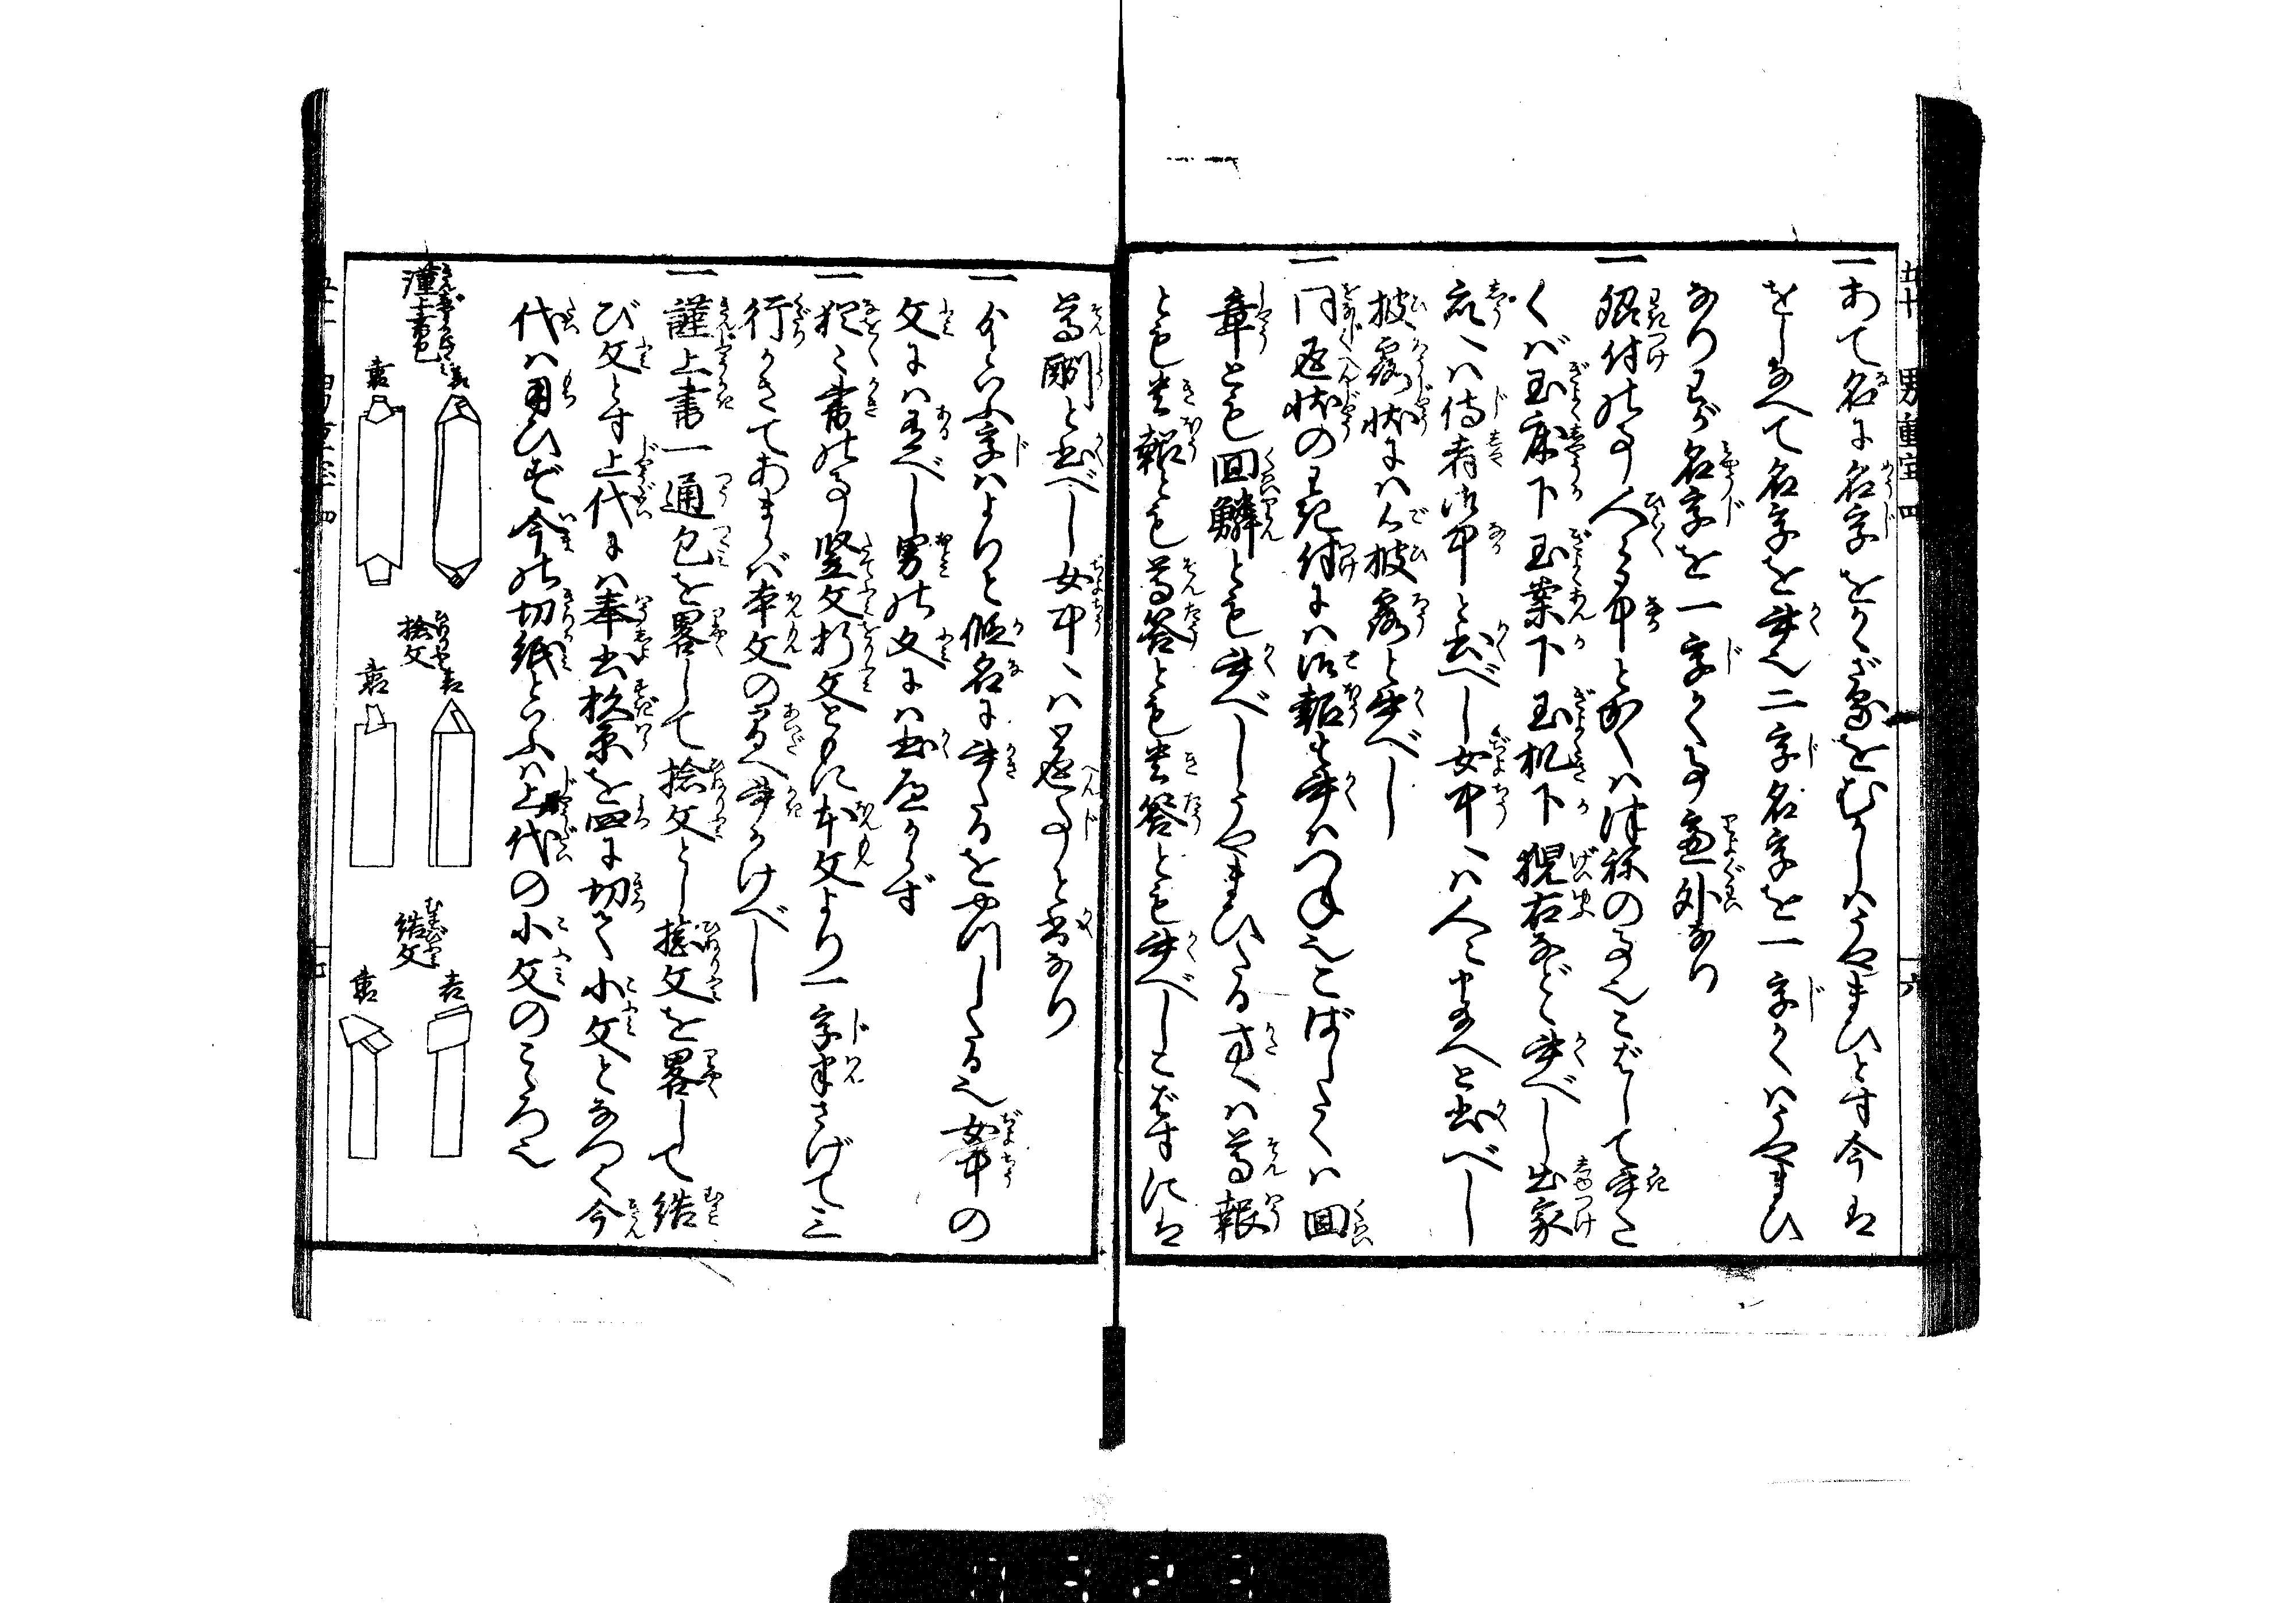 一あて名に名字をかゝざるをむかしハうやまひとす今は
をしなへて名字を書也二字名字を一字かくハうやまひ
なりわが名字を一字かく事慮外なり
一脇付の事人々御中とかくハ津称の事也こばしてかきた
くバ玉床下玉案下玉机下猊右などゝ書べし出家
衆へハ侍者御中と書べし女中へハ人々申給へと書べし
披露状にハ御披露と書べし
一同返状のわき付にハ御報と書ハつね也こばしたくハ回
章とも回鱗とも書べしうやまひたる方へハ尊報
とも貴報とも尊答とも貴答とも書べしこばすには
尊酬と書べし女中へハ御返事と書なり
一かいふ字ハよりと仮名に書たるをやつしたる也女中の
文にハ有べし男の文にハ書べからず
一猶々書の事竪文折文ともに本文より一字半さげて三
行かきてあまらバ本文の間へ書かけべし
一謹上書一通包を略して捻文とし捻文を略して結
び文とす上代にハ奉書杉原を四に切て小文となづく今
代ハ用ひず今の切紙といふハ上代の小文のこゝろ也
謹上書包
表
裏
捻文
表
裏
結文
表
裏
男重宝四
六
七